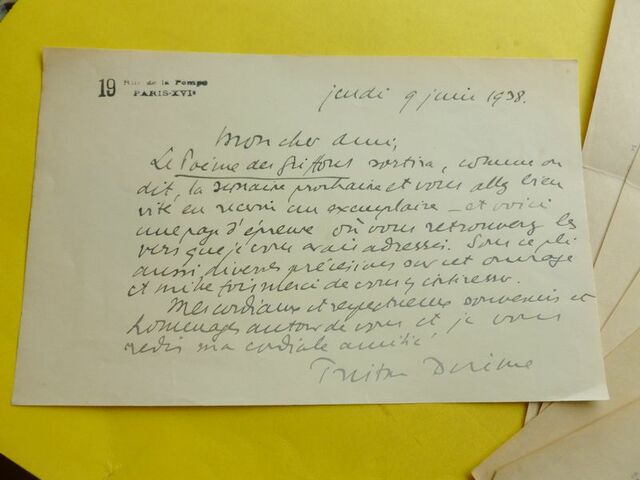 19 Rue de la Pompe
PARIS-XVIe
jeudi 9 juin 1938.
Mon cher ami,
Le Poème des Griffons sortira, comme on
dit, la semaine prochaine et vous allez bien
vite en recevoir un exemplaire – et voici
une page d'épreuve où vous retrouverez les
vers que je vous avais adressés. Sous ce pli
aussi, diverses précisions sur cet ouvrage
et mille fois merci de vous y intéresser.
Mes cordiaux et respectueux souvenirs et
hommages autour de vous et je vous
redis ma cordiale amitié.
Tristan Derème